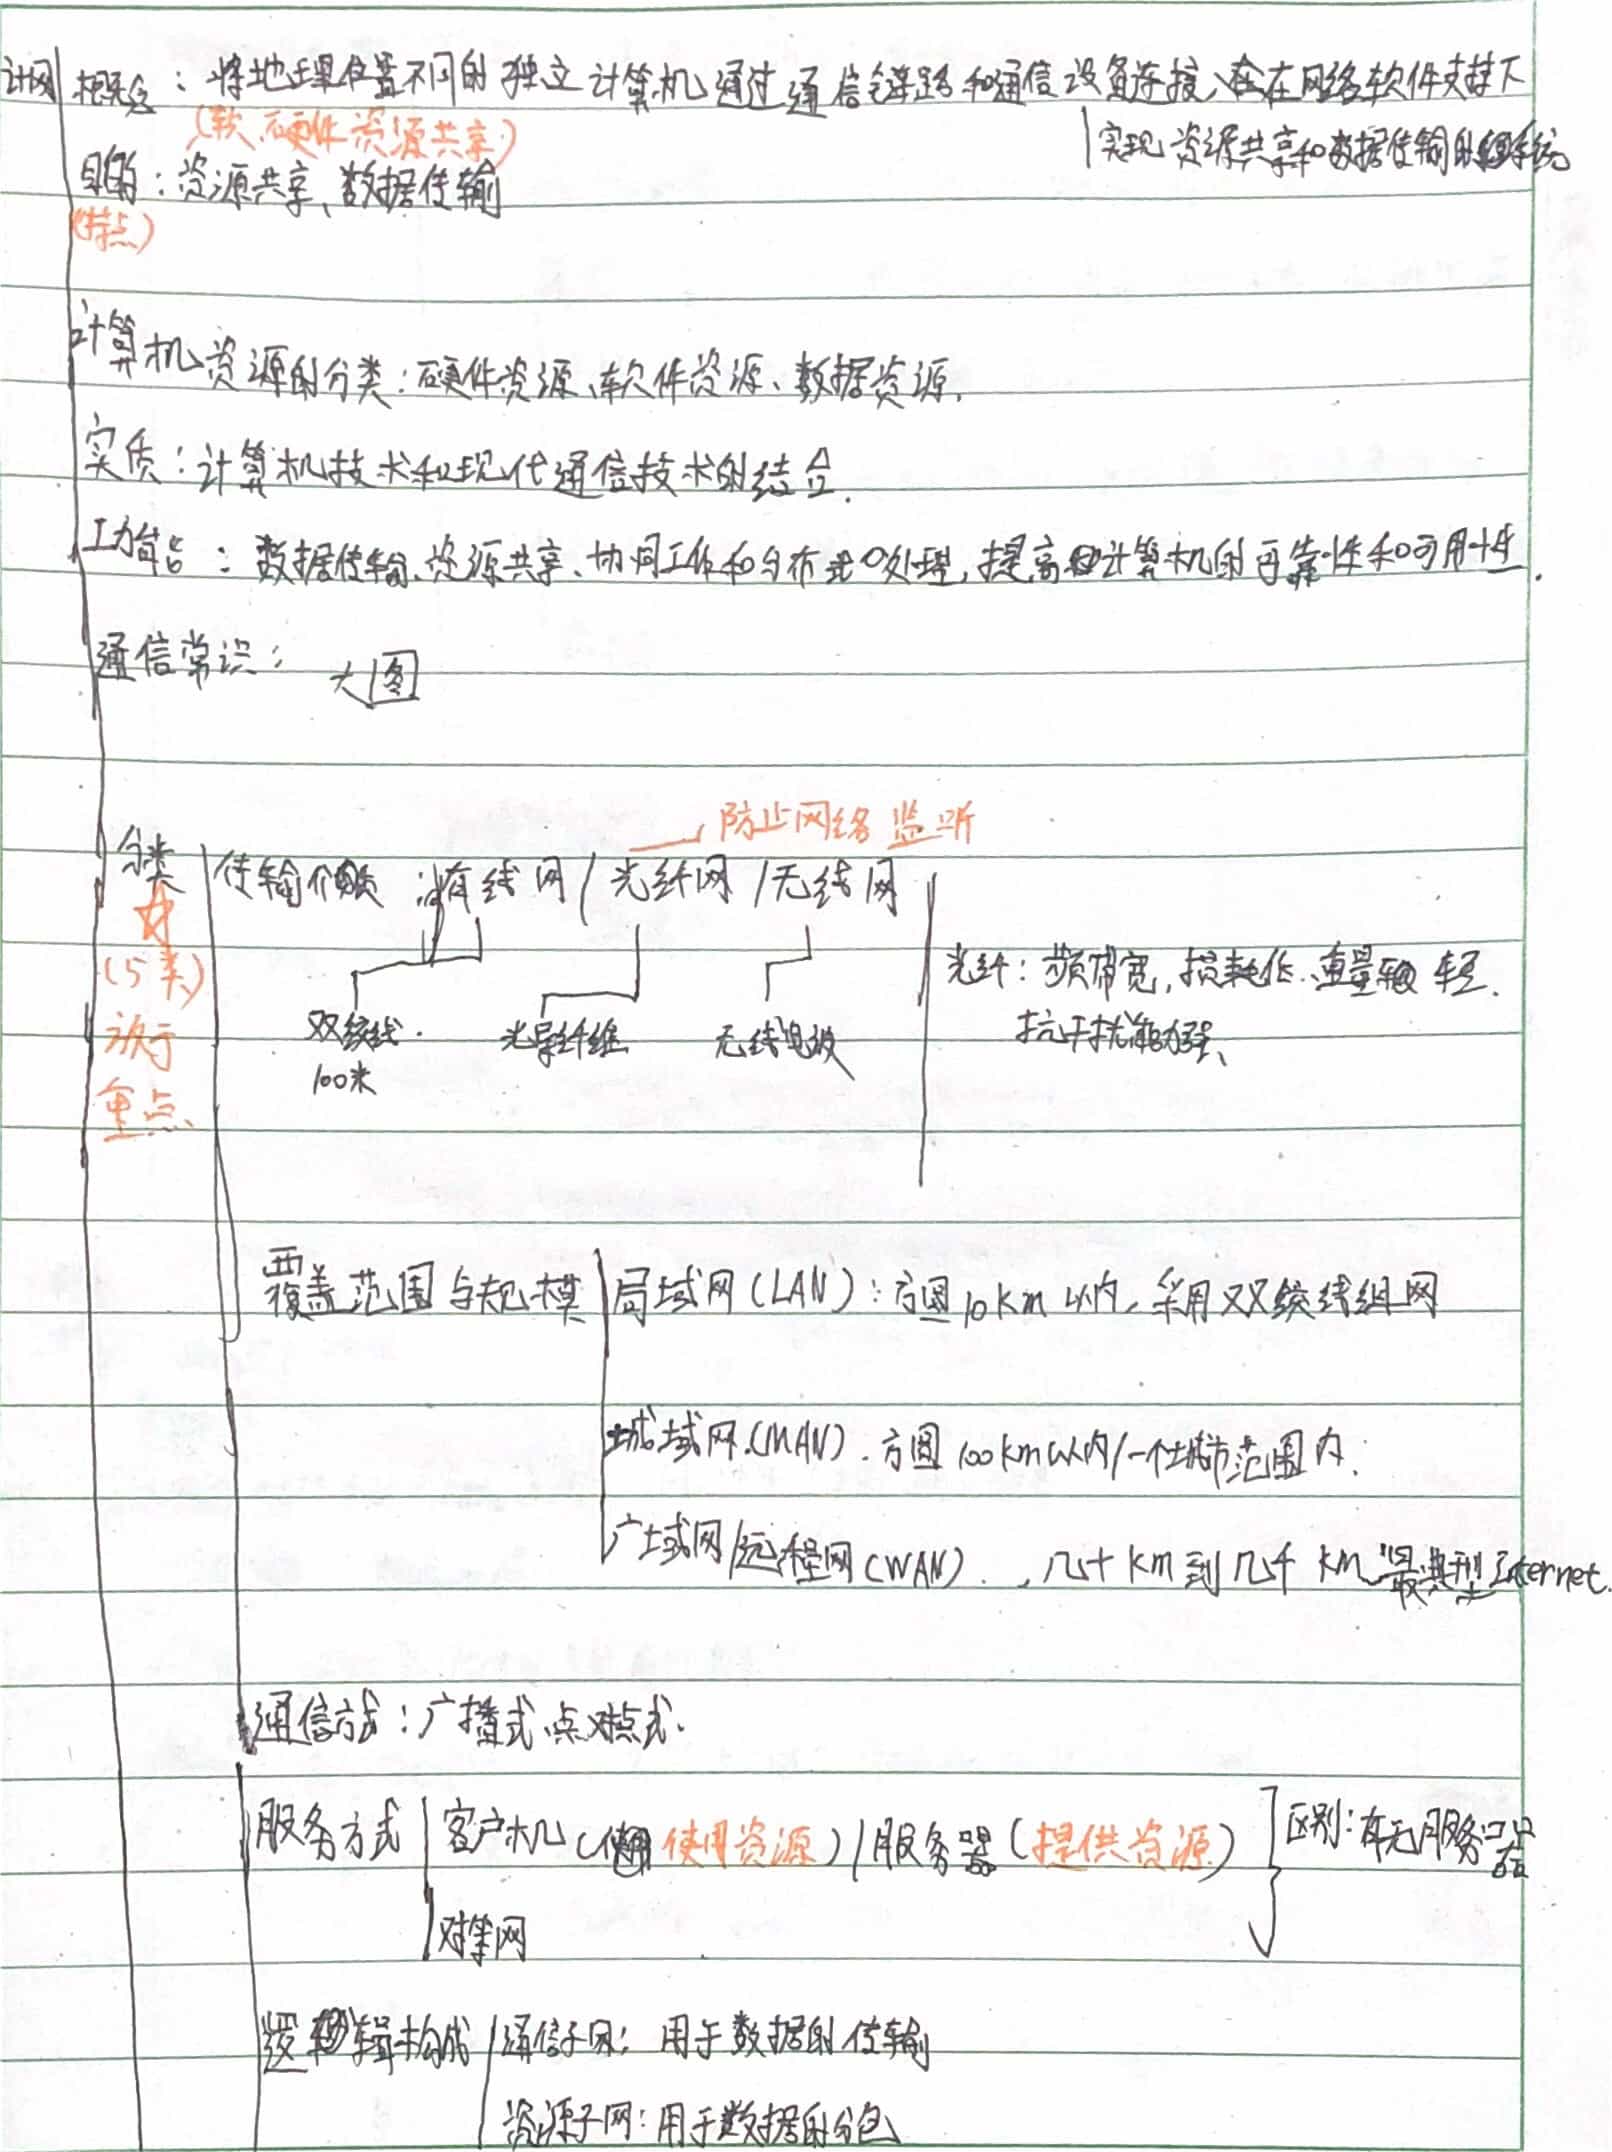 计网 概念：将地理位置不同的独立计算机通过通信链路和通信设备连接、在网络软件支持下
实现资源共享和数据传输的系统
(软、硬件资源共享)
目的：资源共享、数据传输
(特点)
计算机资源的分类：硬件资源、软件资源、数据资源.
实质：计算机技术和现代通信技术的结合.
功能：数据传输、资源共享、协同工作和分布式处理,提高计算机的可靠性和可用性.
通信常识： 大图
防止网络监听
分类 传输介质：有线网/光纤网/无线网
☆
(5类)
放于
重点、
光纤：频带宽,损耗低、重量轻.
抗干扰能力强、
双绞线. 光导纤维 无线电波
100米
覆盖范围与规模 局域网(LAN)：方圆10km以内,采用双绞线组网
城域网(MAN).方圆100km以内/一个城市范围内.
广域网/远程网(WAN).,几十km到几千km 最典型Internet.
通信方式：广播式、点对点式.
服务方式 客户机(使用资源)/服务器(提供资源) 区别：有无服务器
对等网
逻辑构成 通信子网：用于数据的传输
资源子网：用于数据的分包